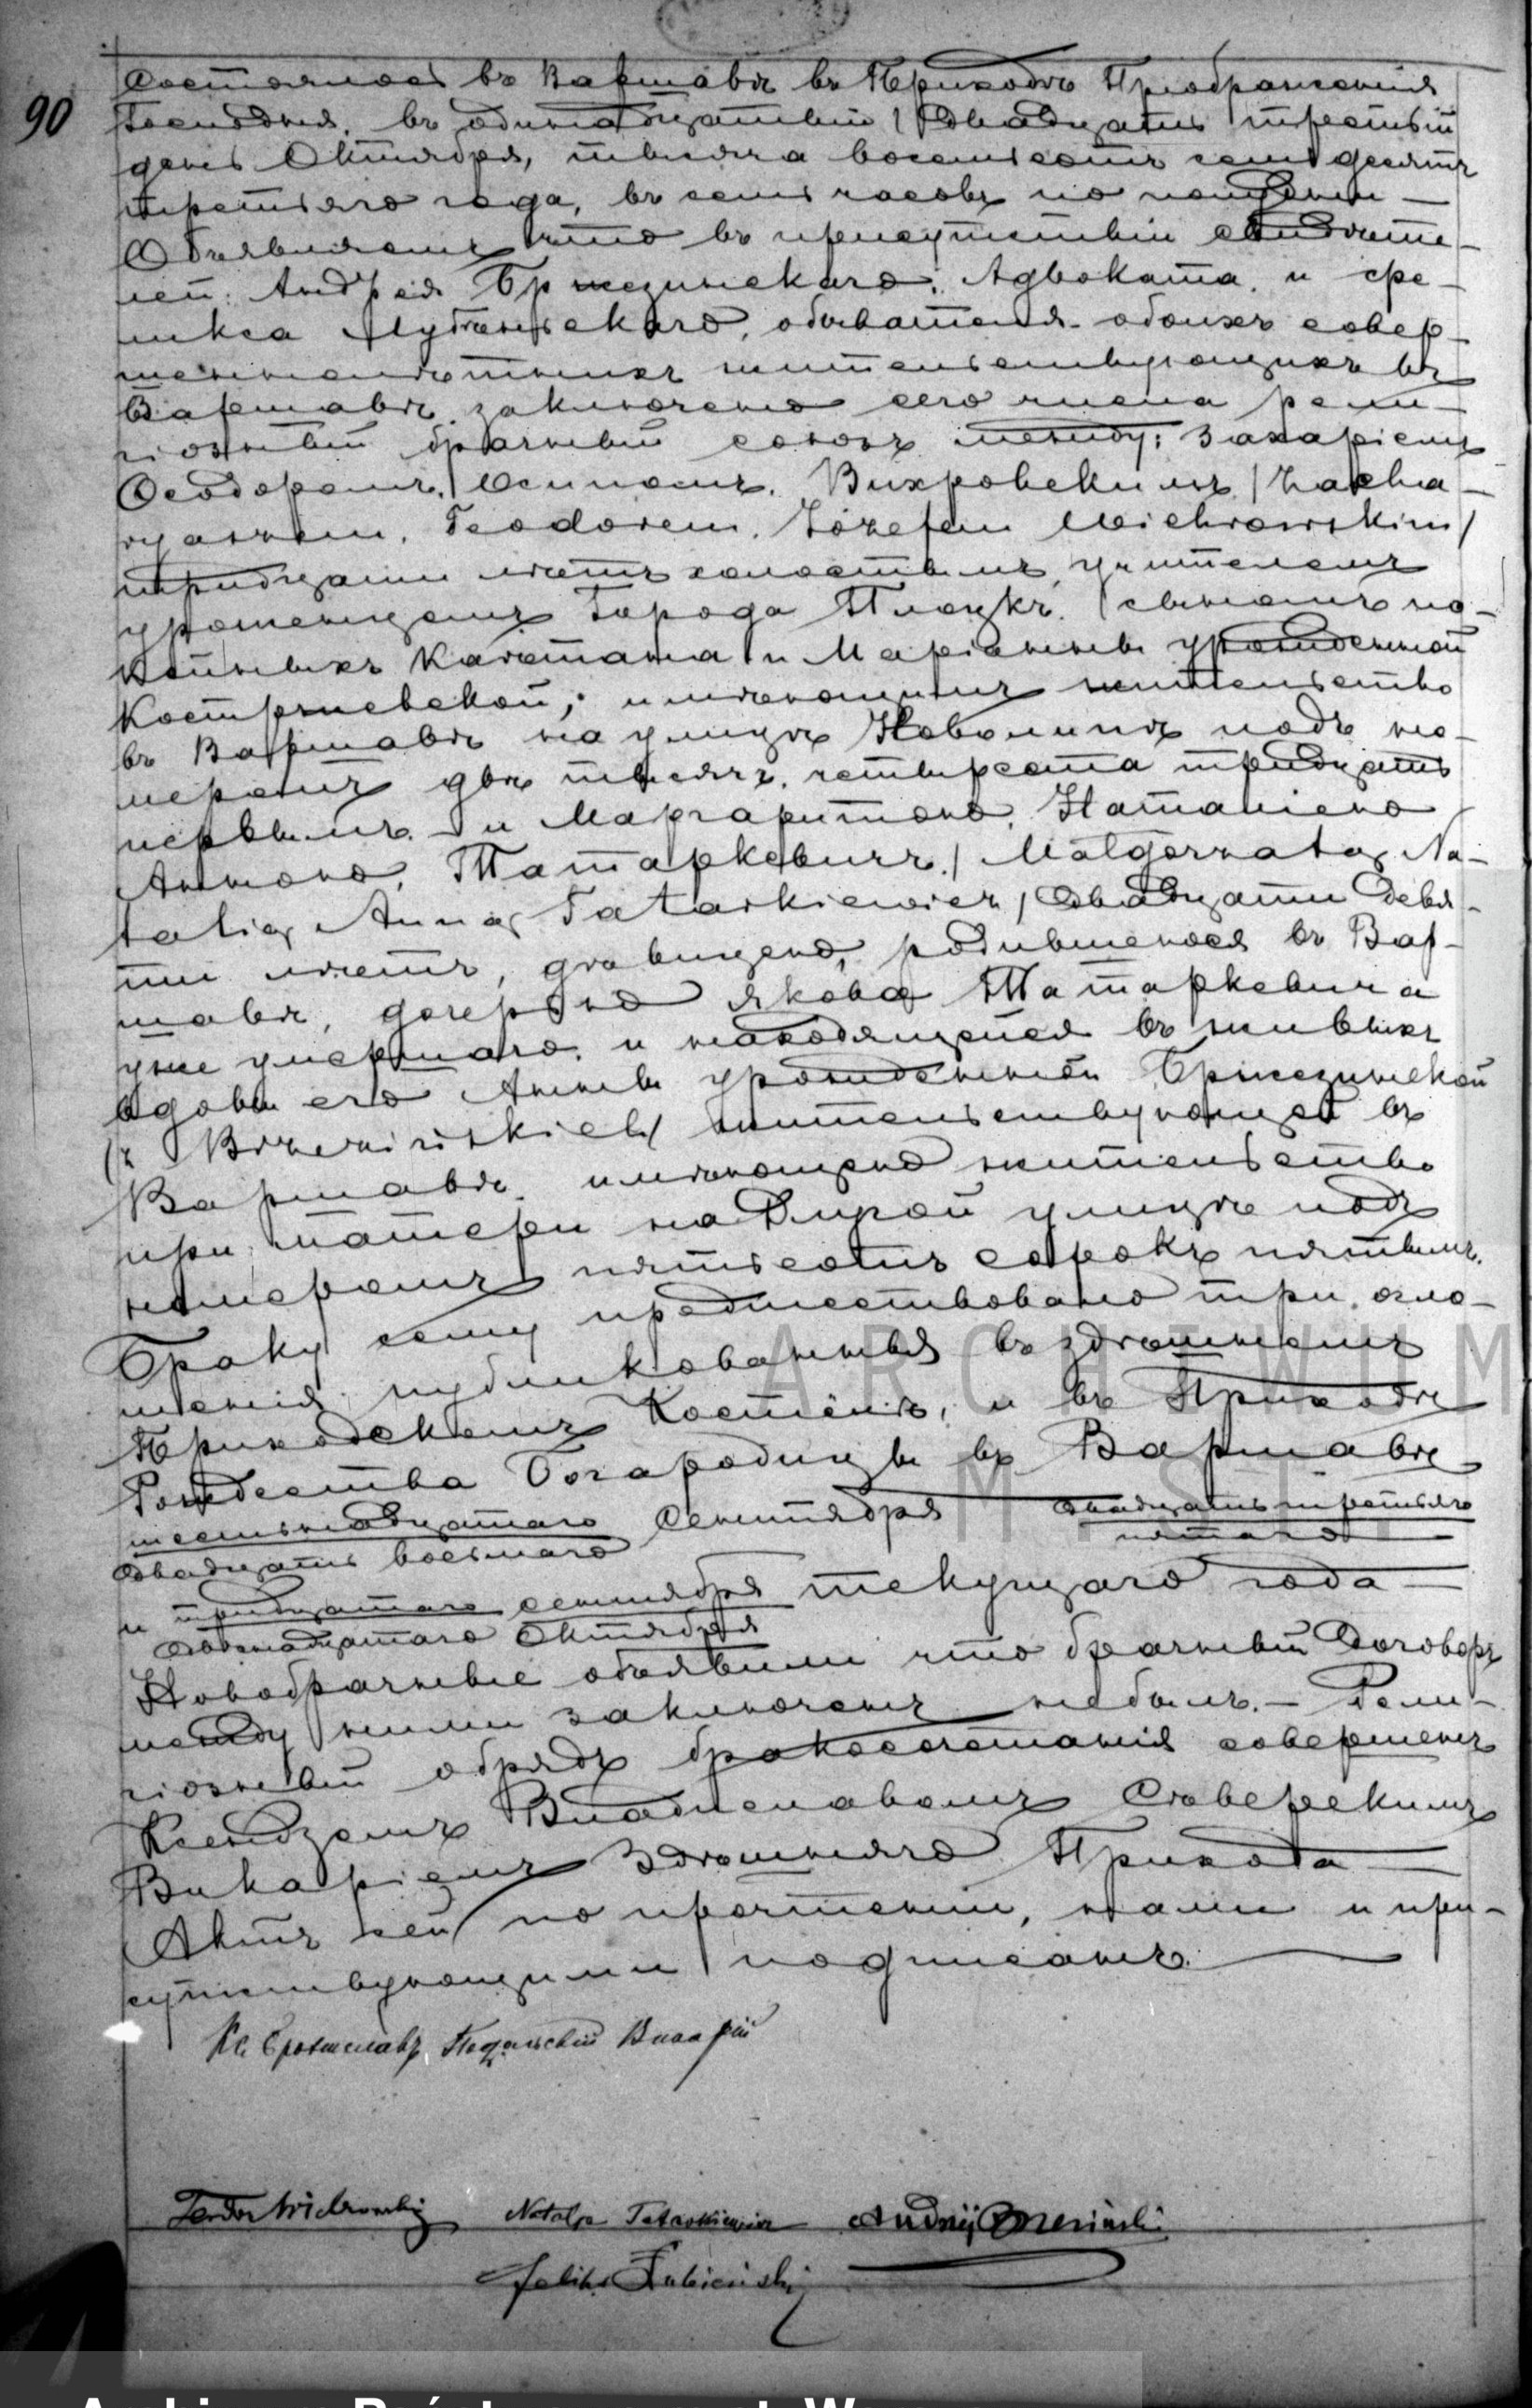 90
Состоялось въ Варшавѣ въ Приходѣ Преображенія
Господня, въ одинадцатый / двадцать третій
день Октября, тысяча восемьсотъ семьдесятъ
третьяго года, въ семь часовъ по полудни —
Объявляемъ что въ присутствіи свидѣте-
лей: Андрея Бржезинскаго, Адвоката, и Фе-
ликса Лубеньскаго, обывателя обоихъ совер-
шеннолѣтныхъ жительствующихъ въ
Варшавѣ, заключено сего числа рели-
гіозный брачный союзъ между: Захаріемъ
Ѳеодоромъ, Осипомъ, Вихровскимъ / Zacha-
ryaszem, Teodorem, Józefem Wichrowskim /
тридцати лѣтъ холостымъ, учителемъ
уроженцемъ Города Плоцкъ, сыномъ по-
койныхъ Каетана и Маріанны урожденной
Костржевской, имѣющимъ жительство
въ Варшавѣ на улицѣ Новолипѣ подъ но-
меромъ двѣ тысячъ, четыреста тридцать
первымъ — и Маргаритою, Наталіею
Анною, Татаркевичъ, / Małgorzatą Na-
talią Anną Tatarkiewicz / двадцати девя-
ти лѣтъ, дѣвицею, родившеюся въ Вар-
шавѣ, дочерью Якова Татаркевича
уже умершаго, и находящейся въ живыхъ
вдовы его Анны урожденной Бржезинской
(z Brzezińskich) жительствующей въ
Варшавѣ, имѣющею жительство
при матери на Длугой улицѣ подъ
номеромъ пятьсотъ сорокъ пятымъ.
Браку сему предшествовало три огло-
шенія публикованныя въ здѣшнемъ
Приходскомъ Костёлѣ, и въ Приходѣ
Рождества Богородицы въ Варшавѣ
шестьнадцатаго Сентября двадцать третьяго
двадцать восьмаго пятаго
и тридцатаго сентября текущаго года —
двѣнадцатаго Октября
Новобрачные объявили что брачный Договоръ
между ними заключенъ небылъ. — Рели-
гіозный обрядъ бракосочетанія совершенъ
Ксендзомъ Владиславомъ Сѣверскимъ
Викаріемъ Здѣшняго Прихода —
Актъ сей по прочтеніи, нами и при-
сутствующими подписанъ. —
Кс. Брониславъ Викарій
Teodor Wichrowski Natalja Tatarkiewicz Andrzej Brzeziński
Feliks Łubieński
ARCHIWUM
M. ST.